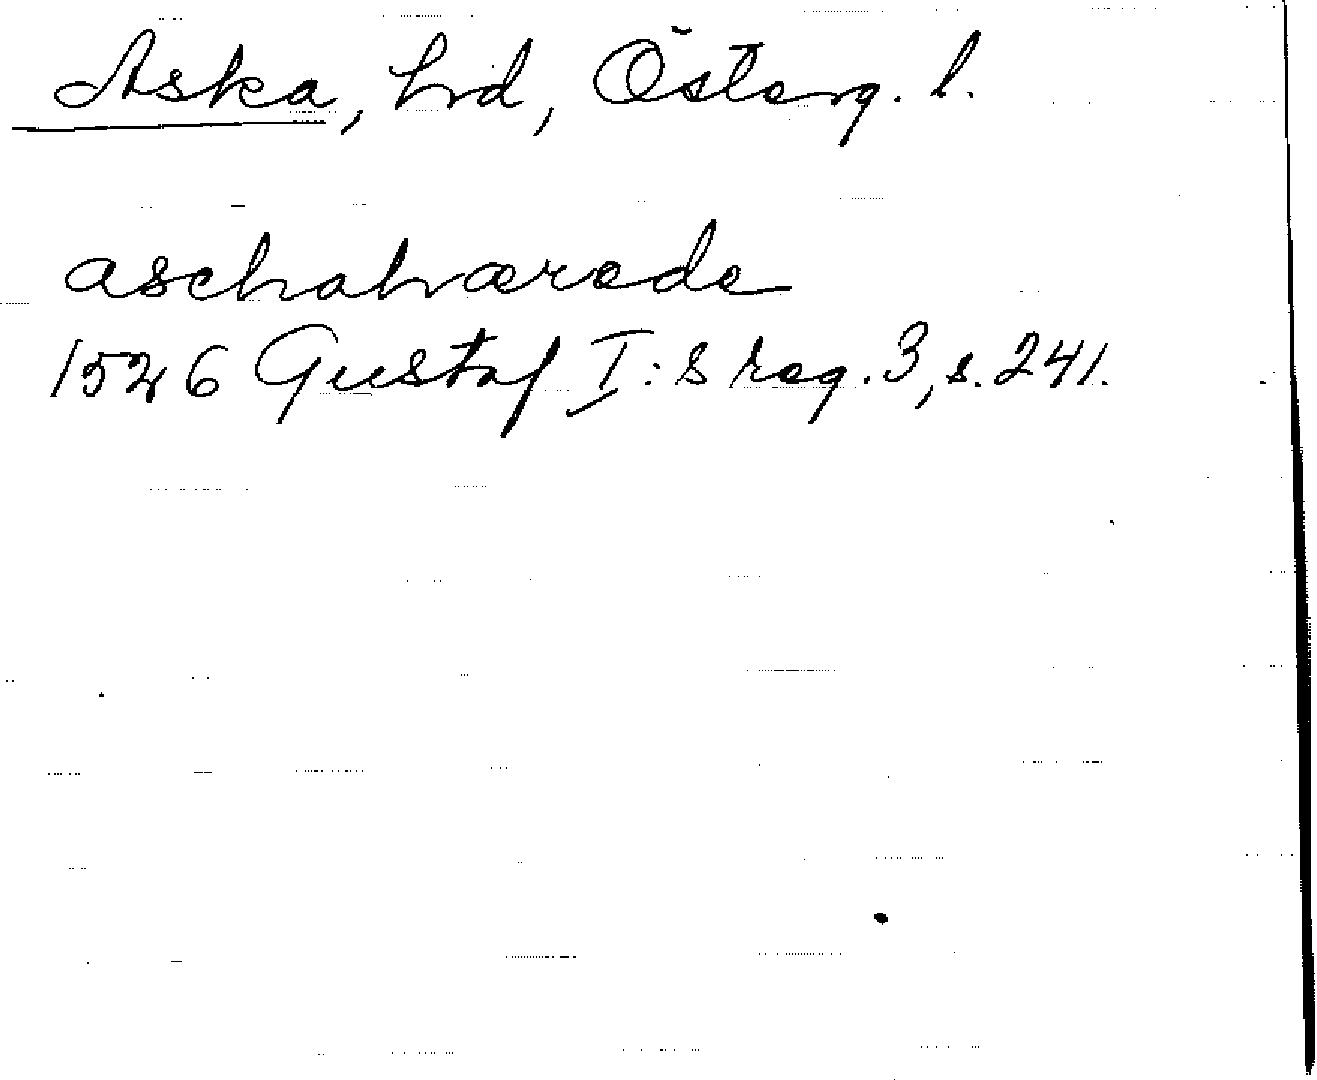 Aska, hrd, Österg. l.
aschahærede
1526 Gustaf I:s reg. 3, s. 241.